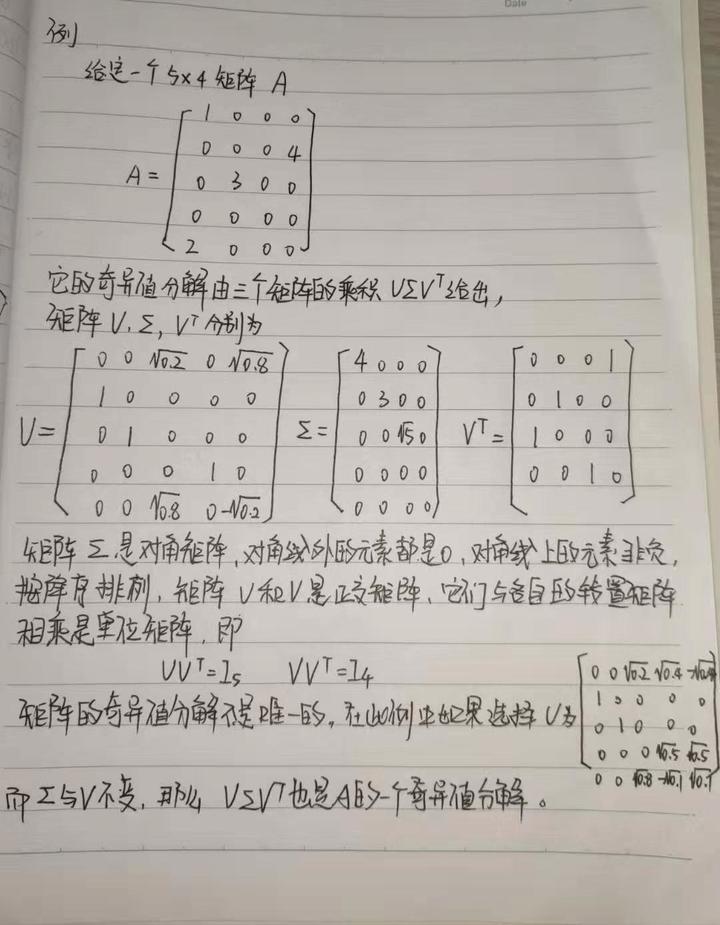 Date
例
给定一个5×4矩阵 A
A = [ 1 0 0 0
0 0 0 4
0 3 0 0
0 0 0 0
2 0 0 0 ]
它的奇异值分解由三个矩阵的乘积 UΣVᵀ给出,
矩阵 U, Σ, Vᵀ 分别为
U = [ 0 0 √0.2 0 √0.8
1 0 0 0 0
0 1 0 0 0
0 0 0 1 0
0 0 √0.8 0 -√0.2 ]
Σ = [ 4 0 0 0
0 3 0 0
0 0 √5 0
0 0 0 0
0 0 0 0 ]
Vᵀ = [ 0 0 0 1
0 1 0 0
1 0 0 0
0 0 1 0 ]
矩阵 Σ 是对角矩阵,对角线外的元素都是0,对角线上的元素非负,
按降序排列,矩阵 U和V是正交矩阵,它们与各自的转置矩阵
相乘是单位矩阵,即
UUᵀ=I₅ VVᵀ=I₄
矩阵的奇异值分解不是唯一的,在此例中如果选择 U为
[ 0 0 √0.2 √0.4 -√0.4
1 0 0 0 0
0 1 0 0 0
0 0 0 √0.5 √0.5
0 0 √0.8 -√0.1 √0.1 ]
而 Σ与V不变,那么 UΣVᵀ也是A的一个奇异值分解。